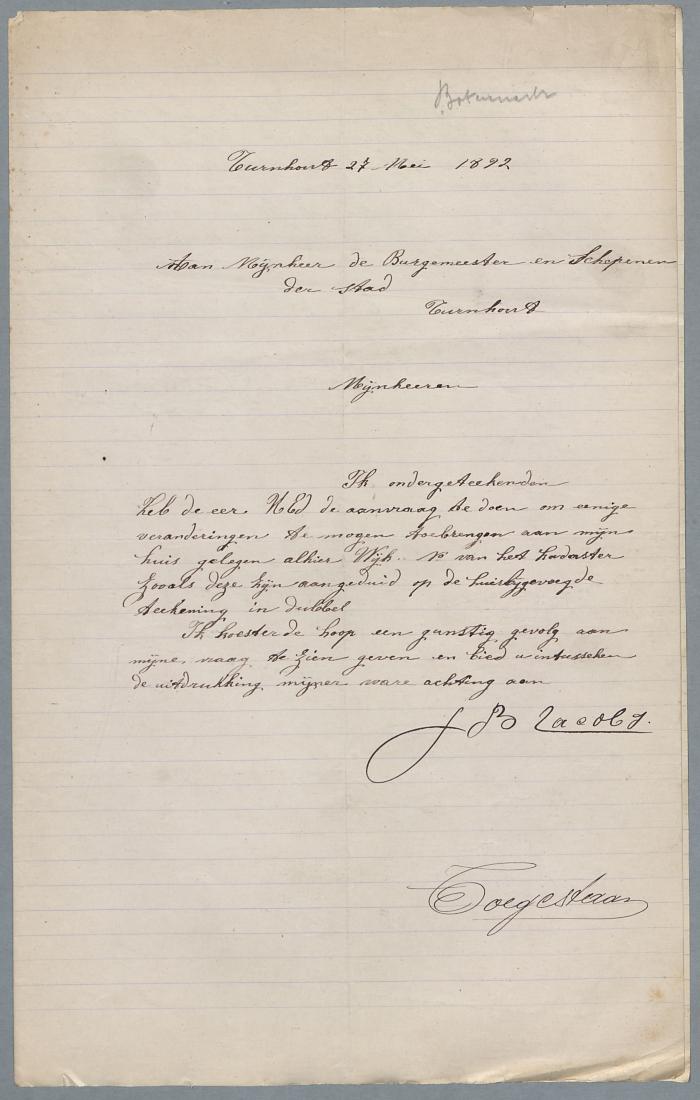 Turnhout 27 Mei 1892
Aan Mijnheer de Burgemeester en Schepenen
der stad
Turnhout
Mijnheeren
Ik ondergeteekenden
heb de eer UEd de aanvraag te doen om eenige
veranderingen te mogen toebrengen aan mijn
huis gelegen alhier Wijk. No van het kadaster
zooals deze zijn aangeduid op de huisbijgevoegde
teekening in dubbel
Ik koester de hoop een gunstig gevolg aan
mijne vraag te zien geven en bied u intusschen
de uitdrukking mijner ware achting aan
J B Jacobs.
Toegestaan